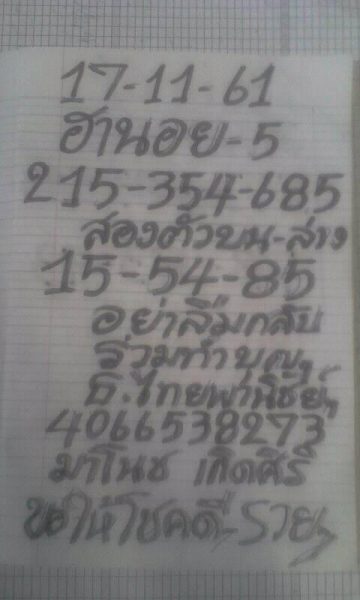 17-11-61
ฮานอย-5
215-354-685
สองตัวบน-ล่าง
15-54-85
อย่าลืมกลับ
ร่วมทำบุญ
ธ.ไทยพานิชย์
4066538273
มาโนช เกิดศิริ
ขอให้โชคดีๆรวยๆ